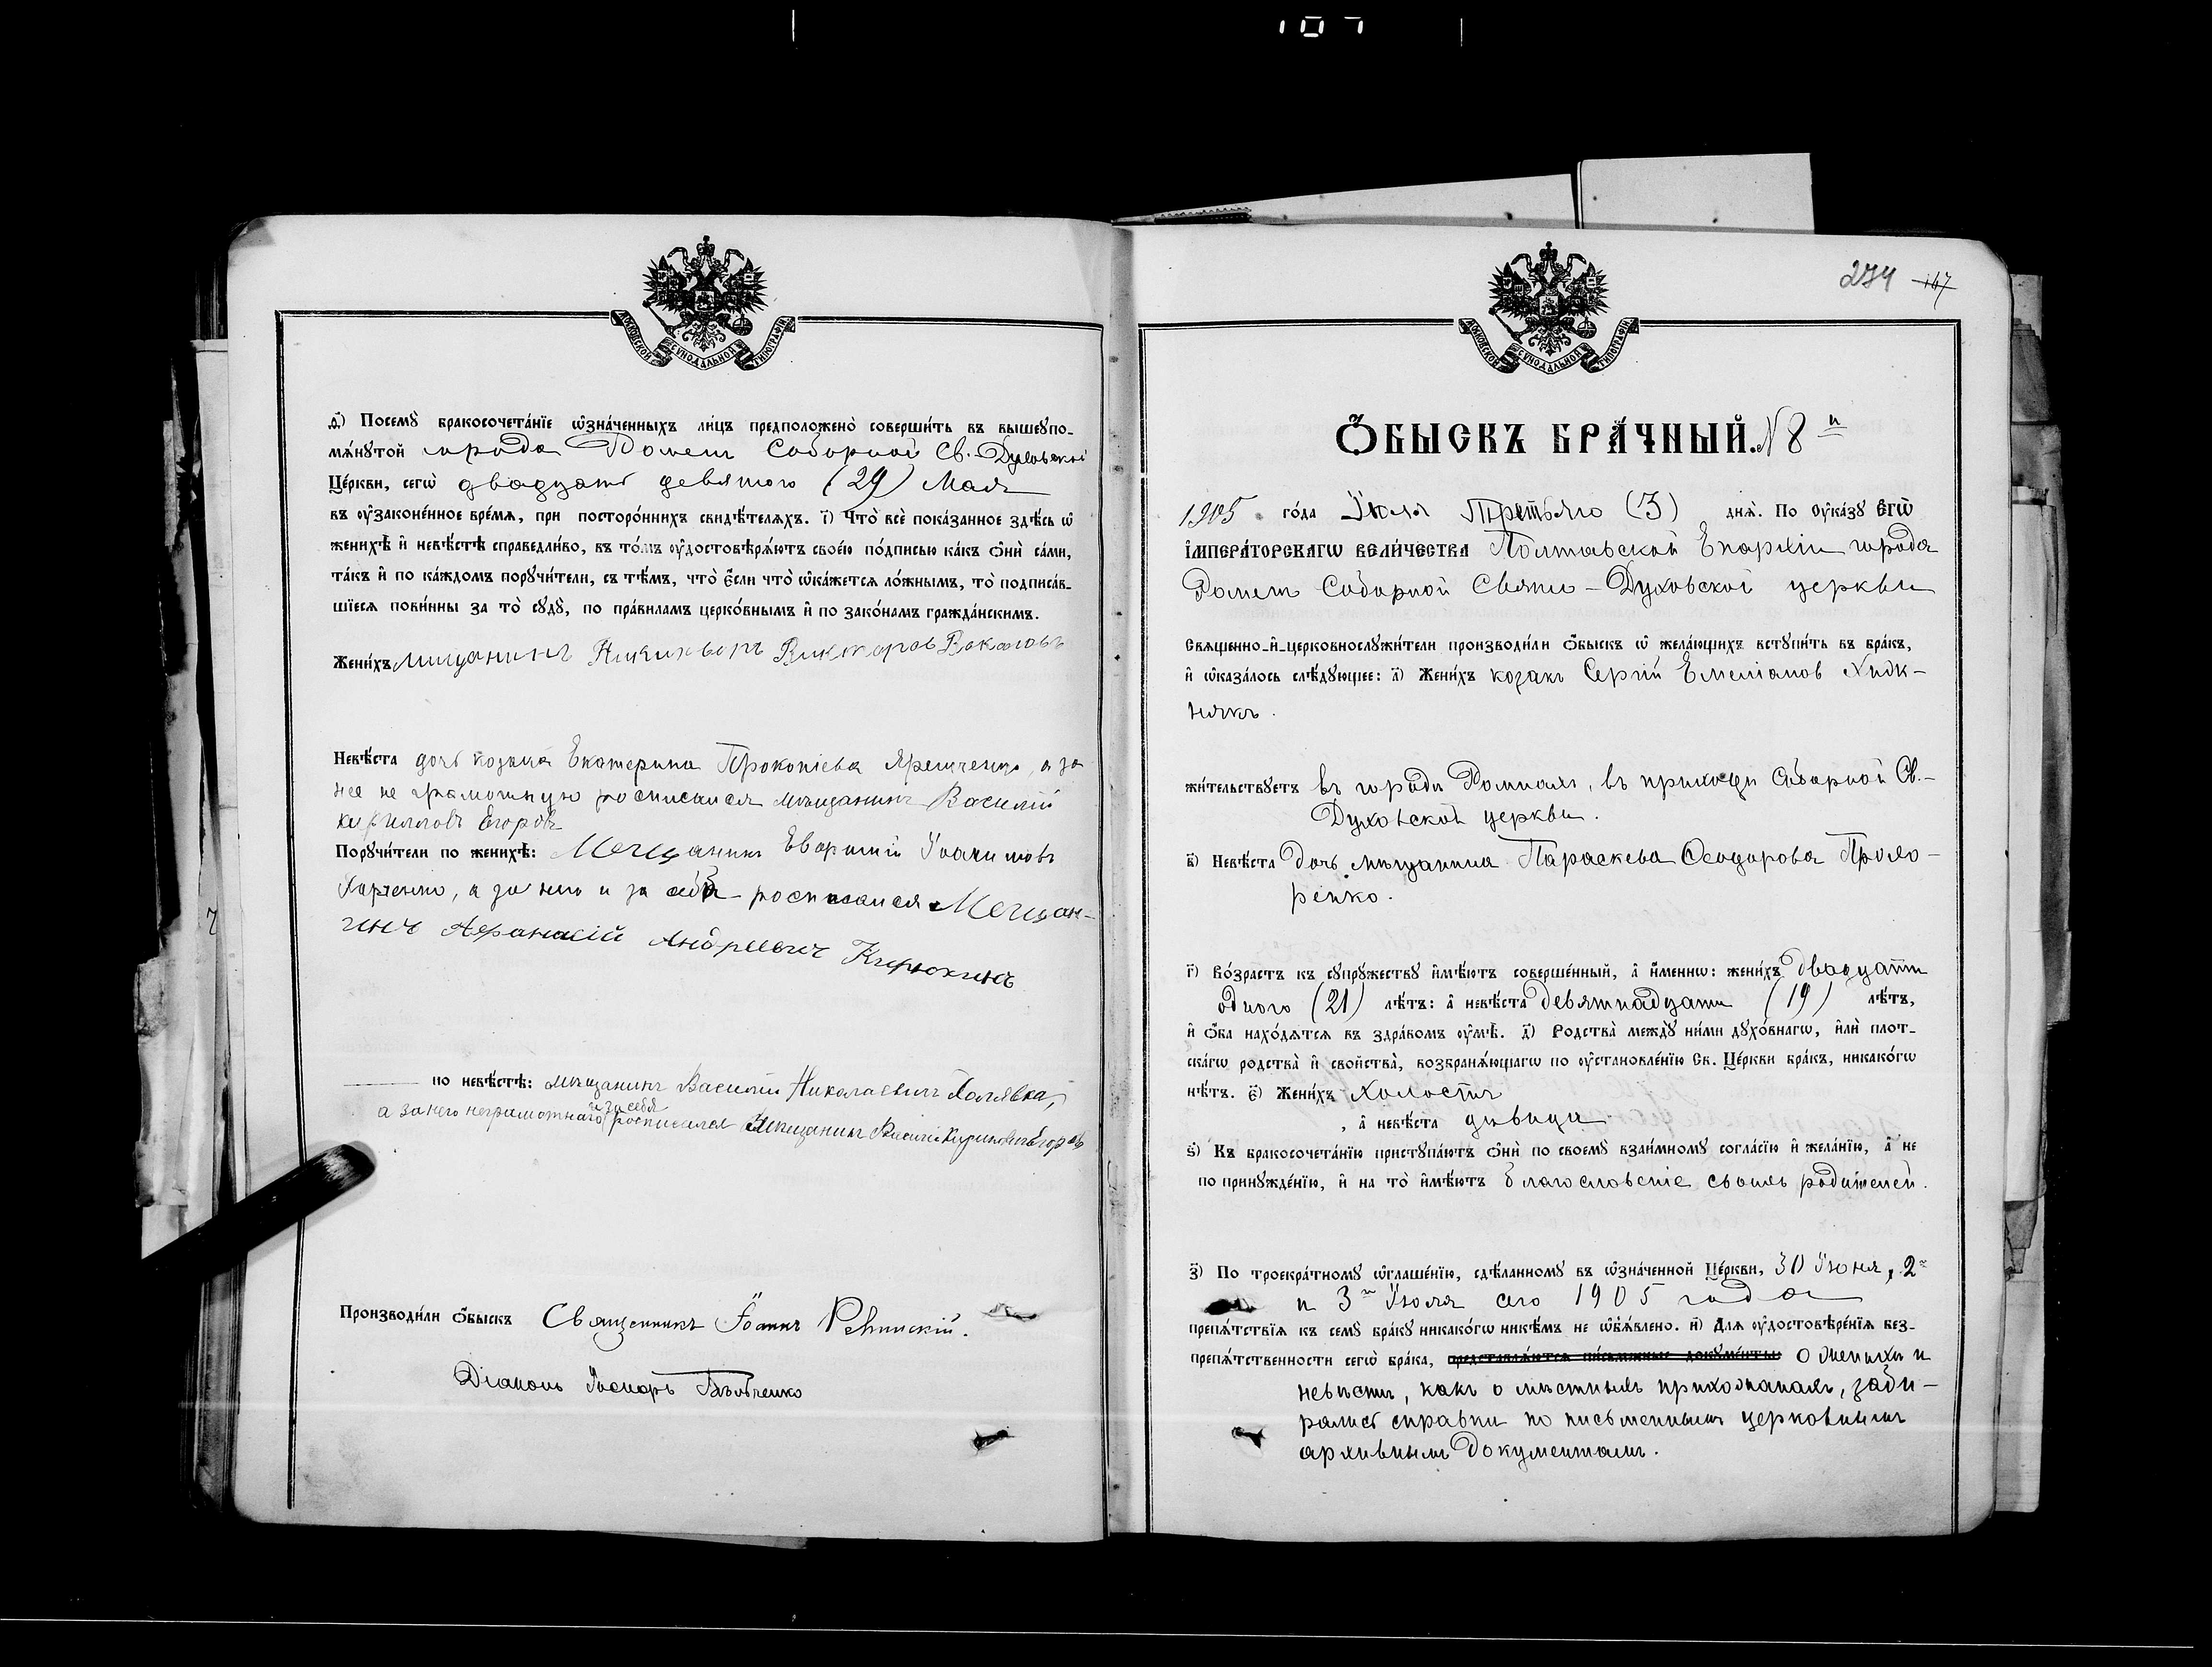 107
МОСКОВСКОЙ СѴНОДАЛЬНОЙ ТИПОГРАФІИ
д҃і) Посемꙋ̀ бракосочета́нїе ѡ҆зна́ченныхъ ли́цъ предположено̀ соверши́ть въ вышеꙋпо-
мѧ́нꙋтой города Ромен Соборной Св.-Духовской
Це́ркви, сегѡ̀ двадцать девятого (29) Мая
въ ᲂу҆законе́нное вре́мѧ, при посторо́ннихъ свидѣ́телѧхъ. є҃і) Что̀ всѐ пока́занное здѣ́сь ѡ҆
женихѣ̀ и҆ невѣ́стѣ справедли́во, въ то́мъ ᲂу҆достовѣрѧ́ютъ свое́ю по́дписью ка́къ ѻ҆нѝ са́ми,
та́къ и҆ по ка́ждомъ порꙋчи́тели, съ тѣ́мъ, что̀ є҆́сли что̀ ѡ҆ка́жетсѧ ло́жнымъ, то̀ подписа́в-
шїесѧ пови́нны за то̀ сꙋдꙋ̀, по пра́виламъ церко́внымъ и҆ по зако́намъ гражда́нскимъ.
Жени́хъ мищанинъ Никифоръ Викторов
Невѣ́ста дочь козака Екатерина Прокопіева Ярешченко, а за
нее не грамотную росписался мѣщанинъ Василій
Кириллов Егоров
Порꙋчи́тели по женихѣ̀: Мещанин Евфимій Іоакимовъ
Харченко, а за него и за себя росписался Мещан-
инъ Афанасій Андреевич Кирюхинъ
по невѣ́стѣ: мѣщанинъ Василій Николаевич Халявка,
и за себя
а за него неграмотнаго росписался Мѣщанин Василій Кириллович Егоров
Производи́ли ѻ҆́быскъ Священникъ Іоаннъ Рклинскій.
Діаконъ
274 167
МОСКОВСКОЙ СѴНОДАЛЬНОЙ ТИПОГРАФІИ
Ѻ҆́БЫСКЪ БРА́ЧНЫЙ. N 8 й
1905 го́да Іюля Третьяго (3) днѧ̀. По ᲂу҆ка́зꙋ Єгѡ̀
І҆мпера́торскагѡ вели́чества Полтавской Епархіи города
Ромен Соборной Свято-Духовской церкви
Сващенно-и҆-церковнослꙋжи́тели производи́ли ѻ҆́быскъ ѡ҆ жела́ющихъ встꙋпи́ть въ бра́къ,
и҆ ѡ҆каза́лось слѣ́дꙋющее: а҃) Жени́хъ козакъ Сергій Емеліанов
жи́тельствꙋетъ въ городѣ Ромнахъ, въ приходѣ Соборной Св.-
Духовской церкви.
в҃) Невѣ́ста Дочь мѣщанина Параскева Ѳеодорова Прохо-
ренко.
г҃) Во́зрастъ къ сꙋпрꙋ́жествꙋ и҆мѣ́ютъ соверше́нный, а҆ и҆́меннѡ: жени́хъ двадцати
одного (21) лѣ́тъ: а҆ невѣ́ста девятнадцати (19) лѣ́тъ,
и҆ ѻ҆́ба нахо́дѧтсѧ въ здра́вомъ ᲂу҆мѣ̀. д҃) Родства̀ междꙋ̀ ни́ми дꙋхо́внагѡ, и҆лѝ плот-
ска́гѡ родства̀ и҆ сво́йства̀, возбранѧ́ющагѡ по ᲂу҆становле́нїю Св. Це́ркви бра́къ, никако́гѡ
нѣ́тъ. є҃) Жени́хъ холостъ
, а҆ невѣ́ста дѣвица
ѕ҃) Къ бракосочета́нїю пристꙋпа́ютъ ѻ҆нѝ по своемꙋ̀ взаи́мномꙋ согла́сїю и҆ жела́нїю, а҆ не
по принꙋжде́нїю, и҆ на то̀ и҆мѣ́ютъ благословеніе своихъ родителей.
з҃) По троекра́тномꙋ ѡ҆глаше́нїю, сдѣ́ланномꙋ въ ѡ҆зна́ченной Це́ркви, 30 Іюня, 2го
и 3го Іюля сего 1905 года
препѧ́тствїѧ къ семꙋ̀ бра́кꙋ никако́гѡ никѣ́мъ не ѡ҆б̾ѧ́влено. и҃) Длѧ ᲂу҆достовѣре́нїѧ без-
препѧ́тственности сегѡ̀ бра́ка, представлѧ́ютсѧ пи́сьменные докꙋме́нты: о женихѣ и
невѣстѣ, какъ о мѣстныхъ прихожанахъ, заби-
рались справки по письменнымъ церковнымъ
архивнымъ документамъ.